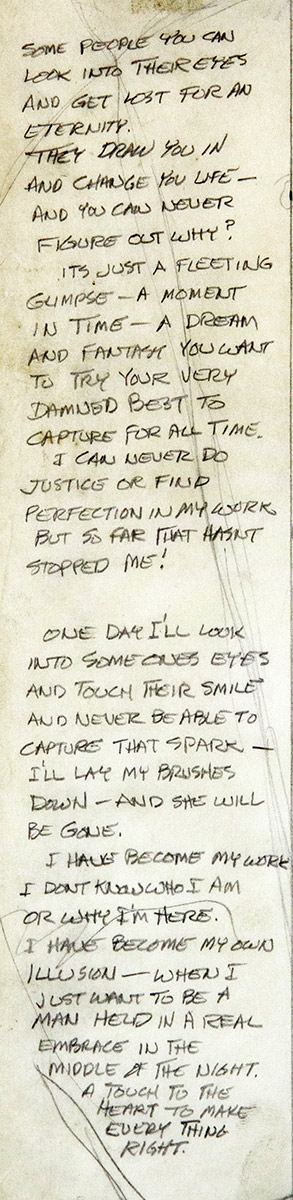 SOME PEOPLE YOU CAN
LOOK INTO THEIR EYES
AND GET LOST FOR AN
ETERNITY.
THEY DRAW YOU IN
AND CHANGE YOU LIFE —
AND YOU CAN NEVER
FIGURE OUT WHY?
ITS JUST A FLEETING
GLIMPSE — A MOMENT
IN TIME — A DREAM
AND FANTASY YOU WANT
TO TRY YOUR VERY
DAMNED BEST TO
CAPTURE FOR ALL TIME.
I CAN NEVER DO
JUSTICE OR FIND
PERFECTION IN MY WORK
BUT SO FAR THAT HASNT
STOPPED ME!
ONE DAY I'LL LOOK
INTO SOMEONES EYES
AND TOUCH THEIR SMILE
AND NEVER BE ABLE TO
CAPTURE THAT SPARK —
I'LL LAY MY BRUSHES
DOWN — AND SHE WILL
BE GONE.
I HAVE BECOME MY WORK
I DONT KNOW WHO I AM
OR WHY I'M HERE.
I HAVE BECOME MY OWN
ILLUSION — WHEN I
JUST WANT TO BE A
MAN HELD IN A REAL
EMBRACE IN THE
MIDDLE OF THE NIGHT.
A TOUCH TO THE
HEART TO MAKE
EVERY THING
RIGHT.